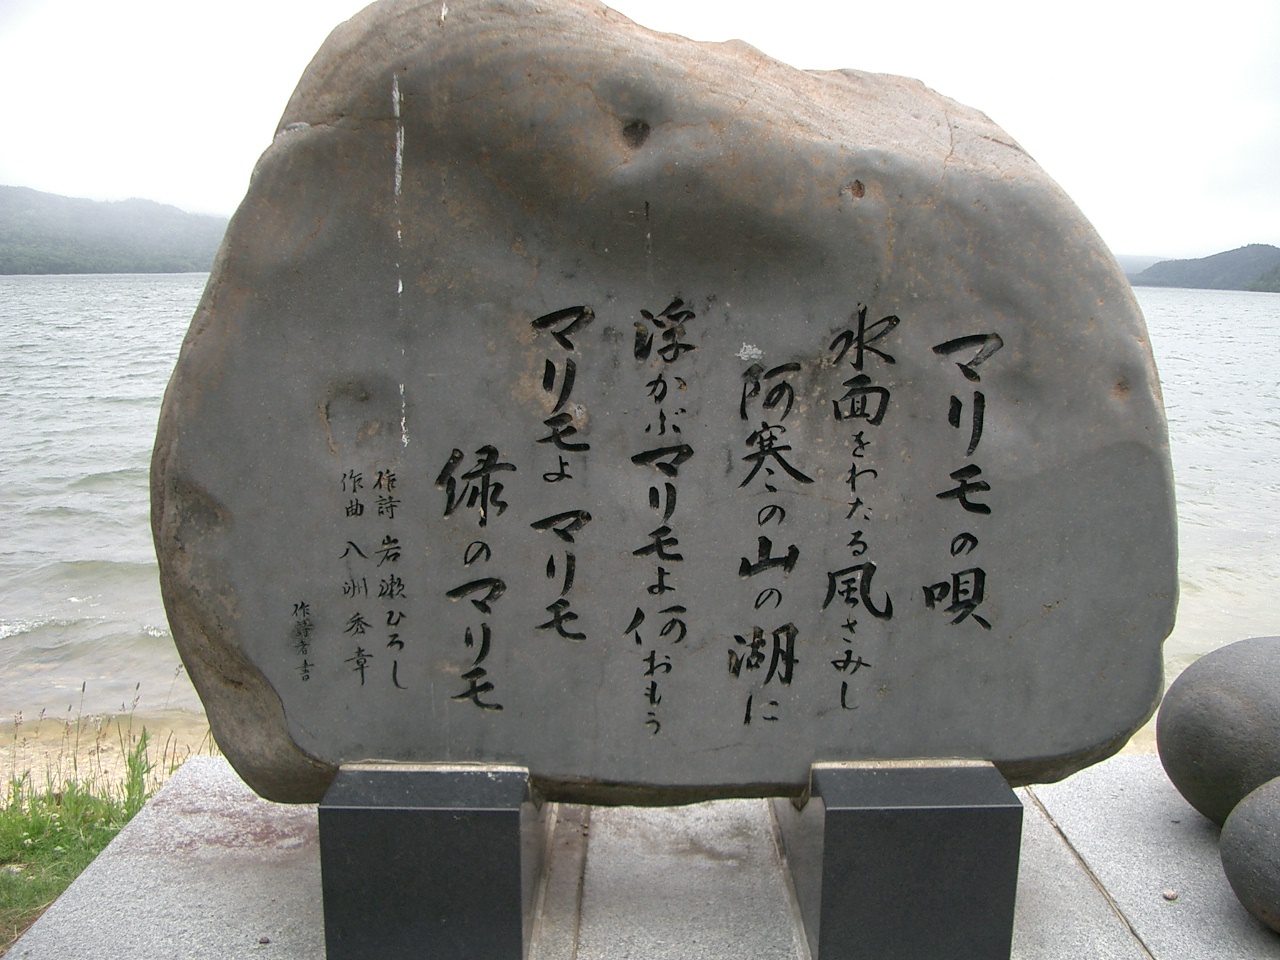 マリモの唄
水面をわたる風さみし
阿寒の山の湖に
浮かぶマリモよ何おもう
マリモよマリモ
緑のマリモ
作詩 岩瀬ひろし
作曲 八洲秀章
作詩者書